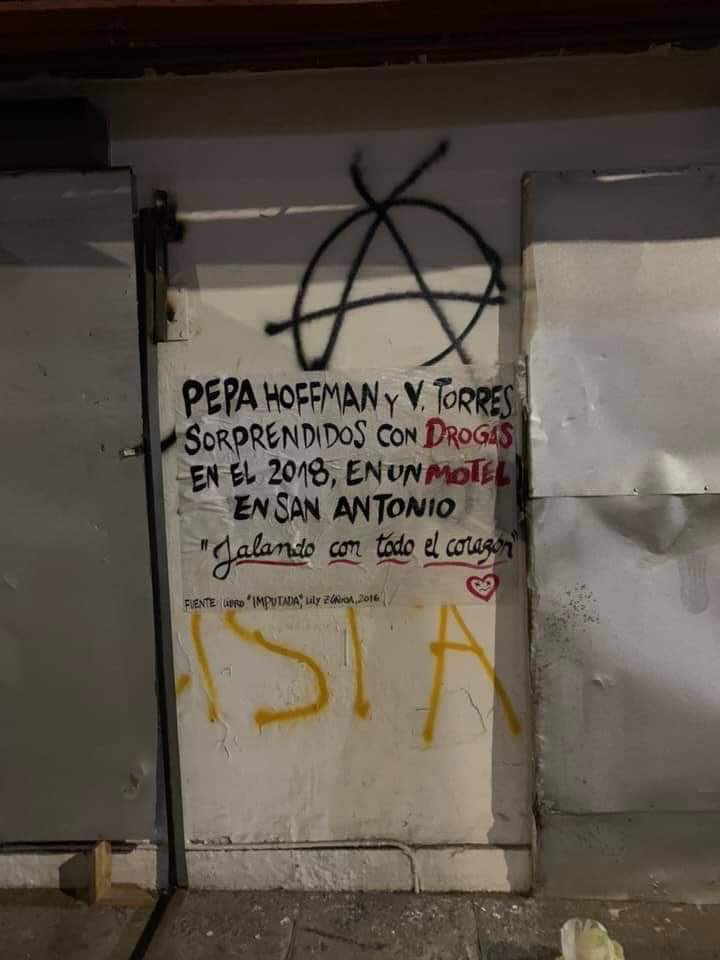 PEPA HOFFMAN Y V. TORRES
SORPRENDIDOS CON DROGAS
EN EL 2018, EN UN MOTEL
EN SAN ANTONIO
"Jalando con todo el corazón"
FUENTE LIBRO "IMPUTADA", LILY ZÚÑIGA, 2016
ISIA